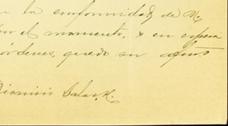 la conformidad de V.
el momento, y en espera
órdenes, quedo su afmo
Dionisio Salas